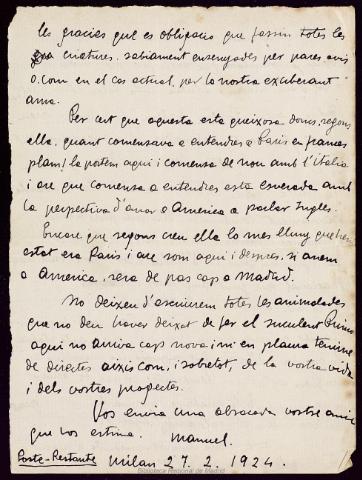 les gracies que es obligacio que fassin totes les
criatures, sabiament ensenyades per pares avis
o com en el cas actual, per la nostra exuberant
ama.
Per cert que aquesta esta queixosa doncs, segons
ella, quant comensava a entendres a Paris en frances
plam! la portem aqui i comensa de nou amb l'italia
i are que comensa a entendres esta esverada amb
la perspectiva d'anar a America a parlar Ingles.
Encare que segons creu ella lo mes lluny que hem
estat era Paris i are som aqui i despres, si anem
a America, sera de pas cap a Madrid.
No deixeu d'escriurem totes les animalades
que no deu haver deixat de fer el suculent Primo
aqui no arriva cap nova i ni en plauria tenirne
de directes aixis com, i sobretot, de la vostra vida
i dels vostres projectes.
Vos envia una abracada vostre amic
que vos estima. Manuel.
Poste-Restante Milan 27. 2. 1924.
Biblioteca Regional de Madrid